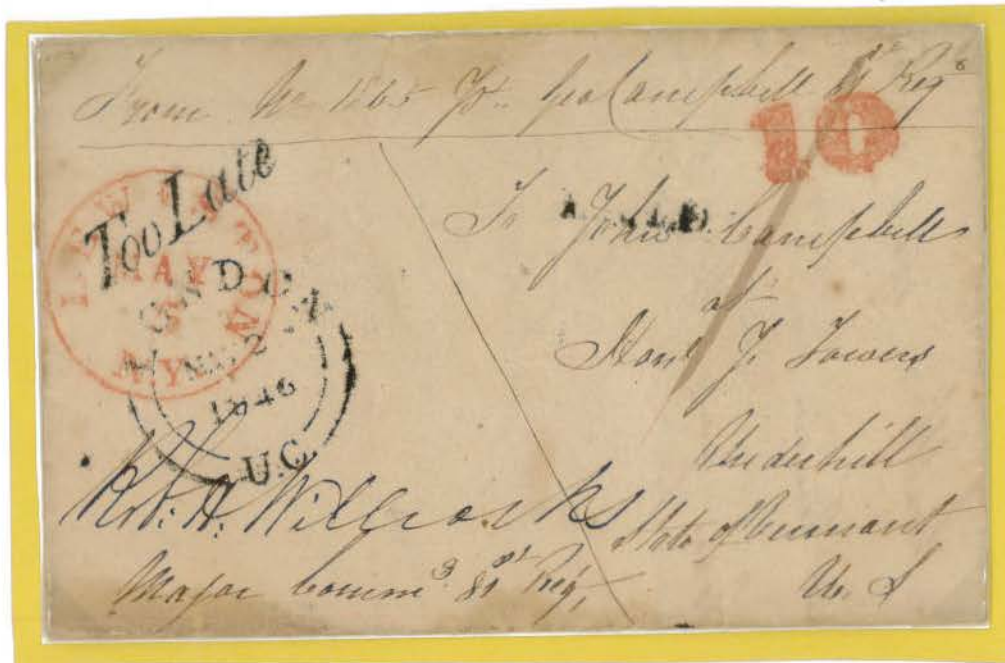 From No 1565 Pt. Geo Campbell 81st Regt
10
Too Late
LEWISTON
MAY
N.Y.
LONDON
1846
U.C.
PAID
To John Campbell
at
Hon. J. Towers
Underhill
State of Vermont
U. S
Robt. H. Willcocks
Major Commg 81st Regt,